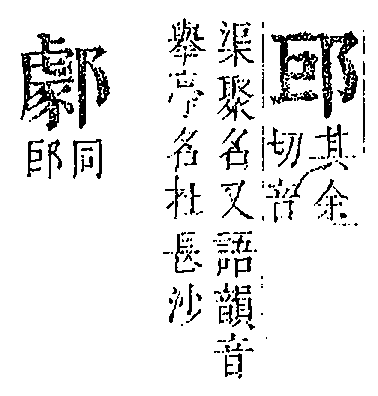 其余
切音
渠聚名又語韻音
舉亭名杜長沙
同